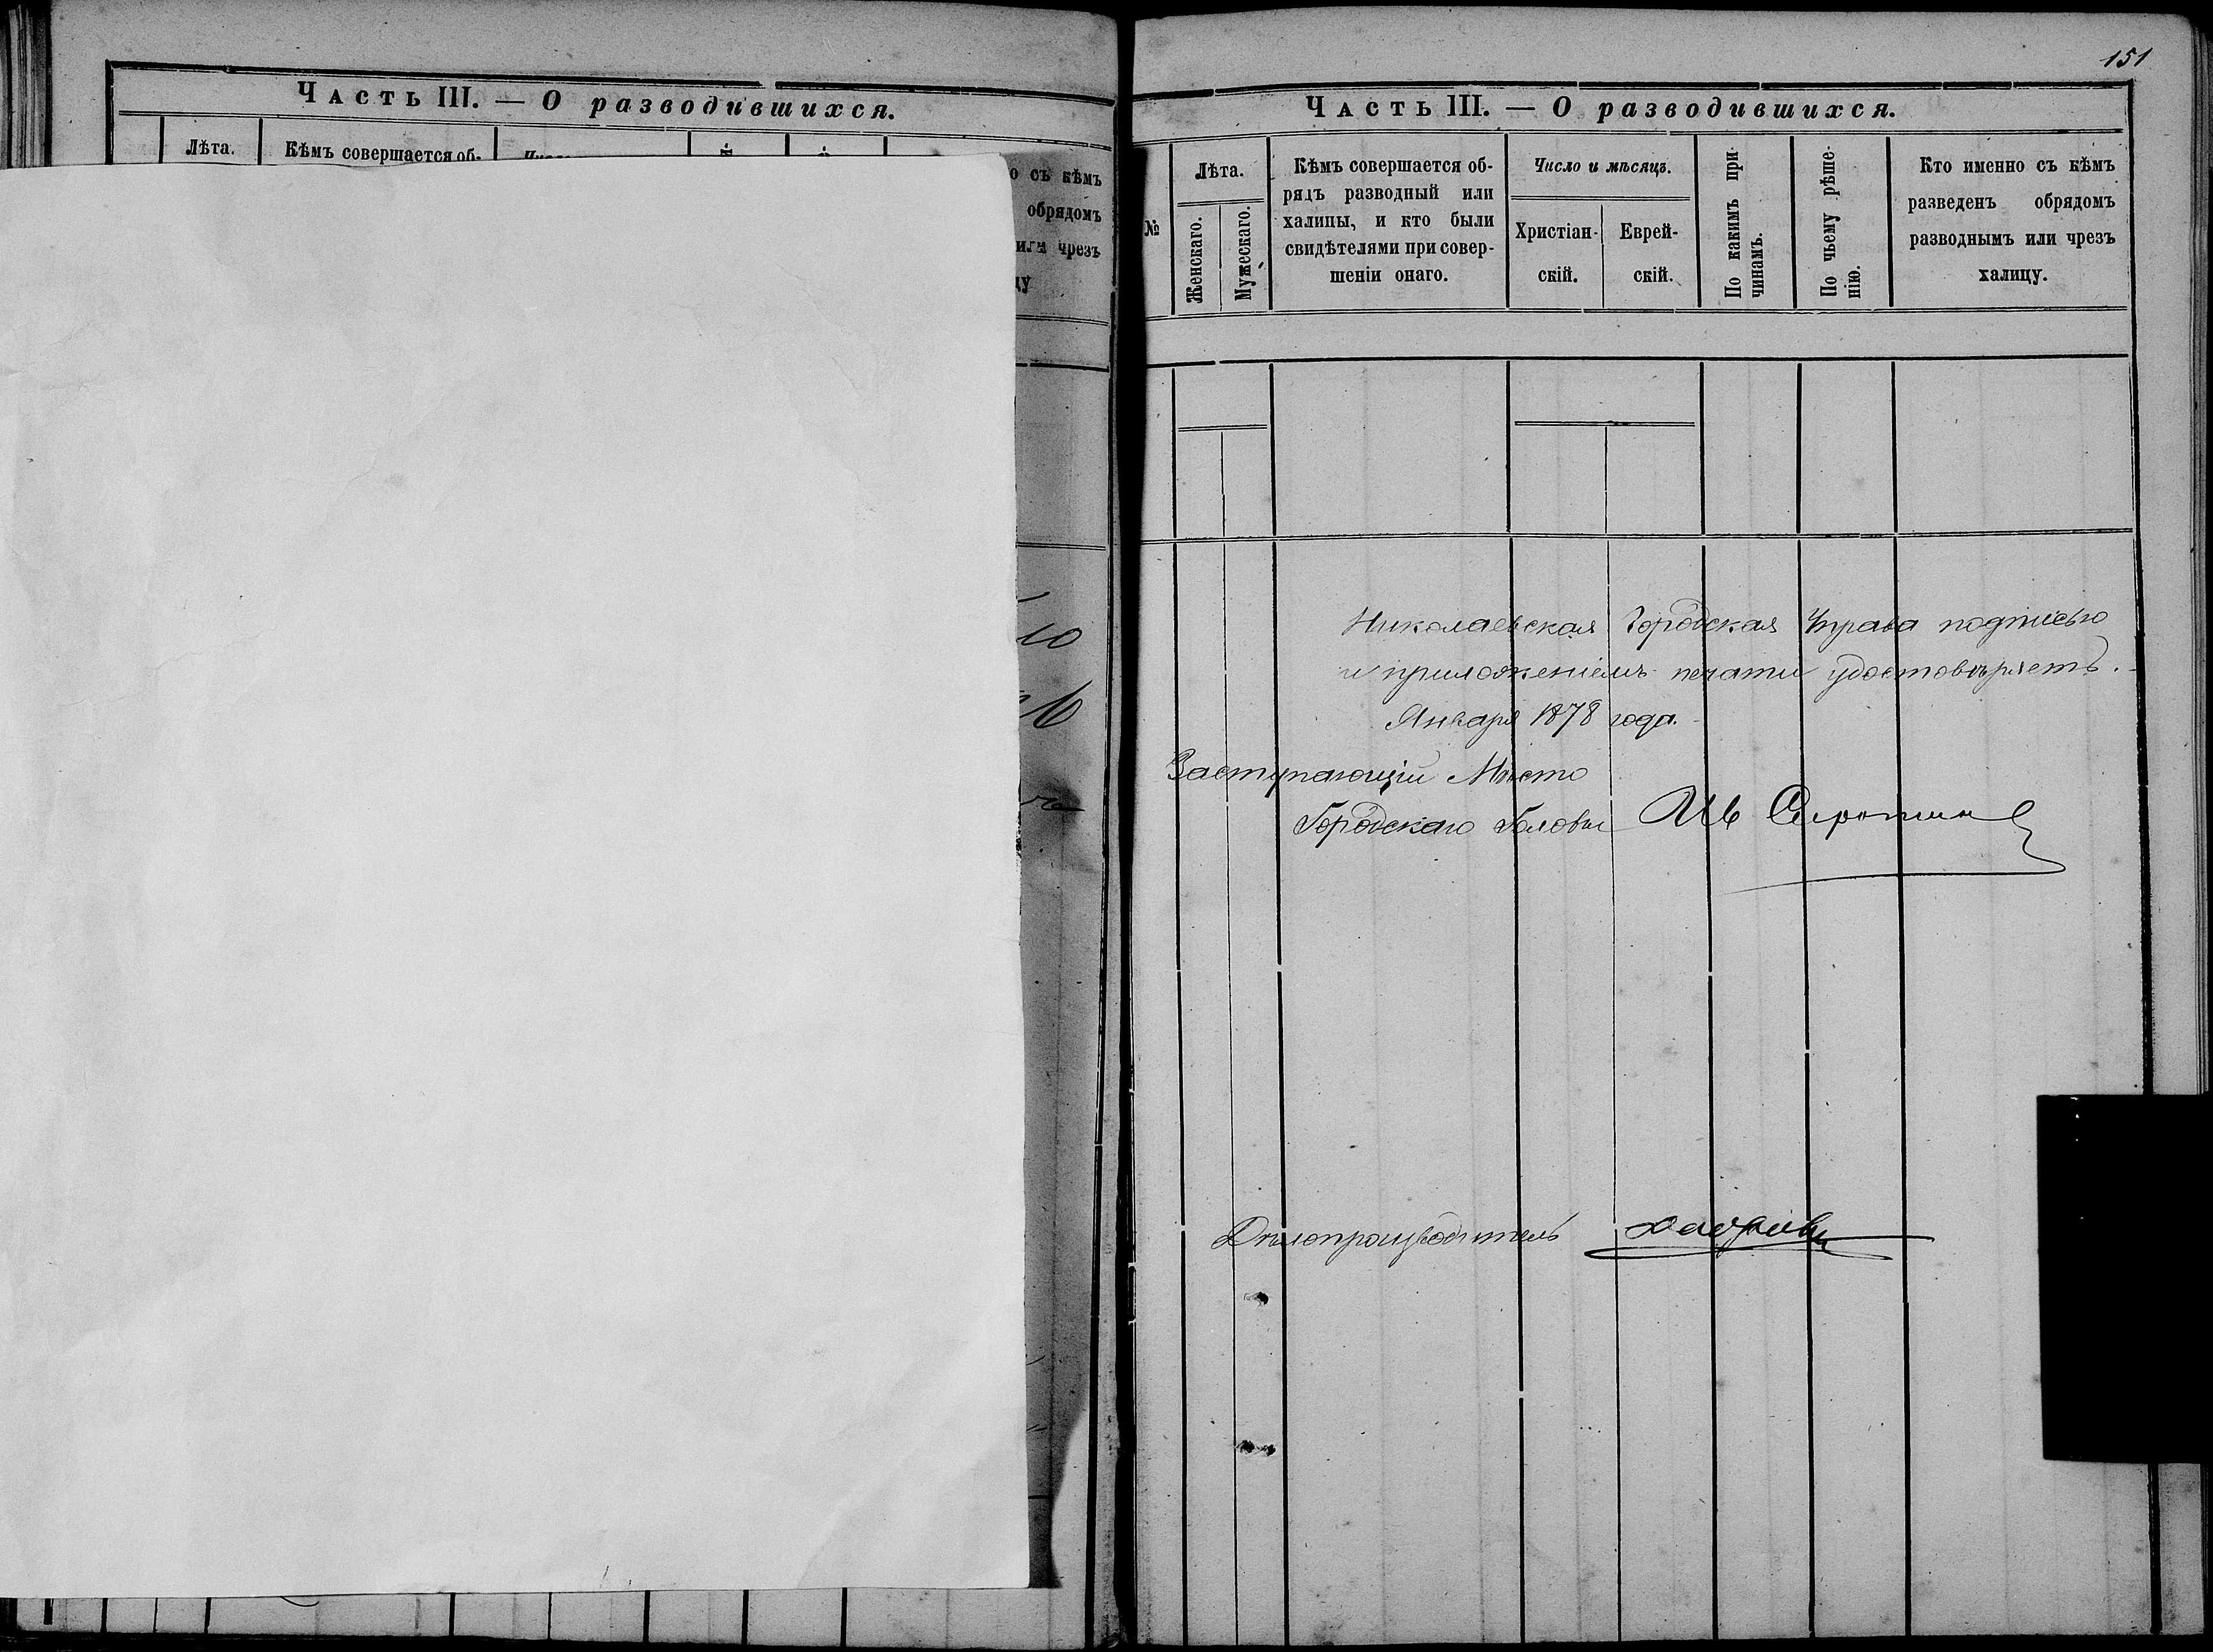 Часть III. — О разводившихся.
Лѣта.
Кѣмъ совершается об-
съ кѣмъ
обрядомъ
или чрезъ
151
Часть III. — О разводившихся.
№
Лѣта.
Женскаго.
Мужескаго.
Кѣмъ совершается об-
рядъ разводный или
халицы, и кто были
свидѣтелями при совер-
шеніи онаго.
Число и мѣсяцъ.
Христіан-
скій.
Еврей-
скій.
По какимъ при-
чинамъ.
По чьему рѣше-
нію.
Кто именно съ кѣмъ
разведенъ обрядомъ
разводнымъ или чрезъ
халицу.
Николаевская Городская Управа подписью
и приложеніемъ печати удостовѣряетъ.
Января 1878 года.
Заступающій Мѣсто
Городскаго Головы
Дѣлопроизводитель